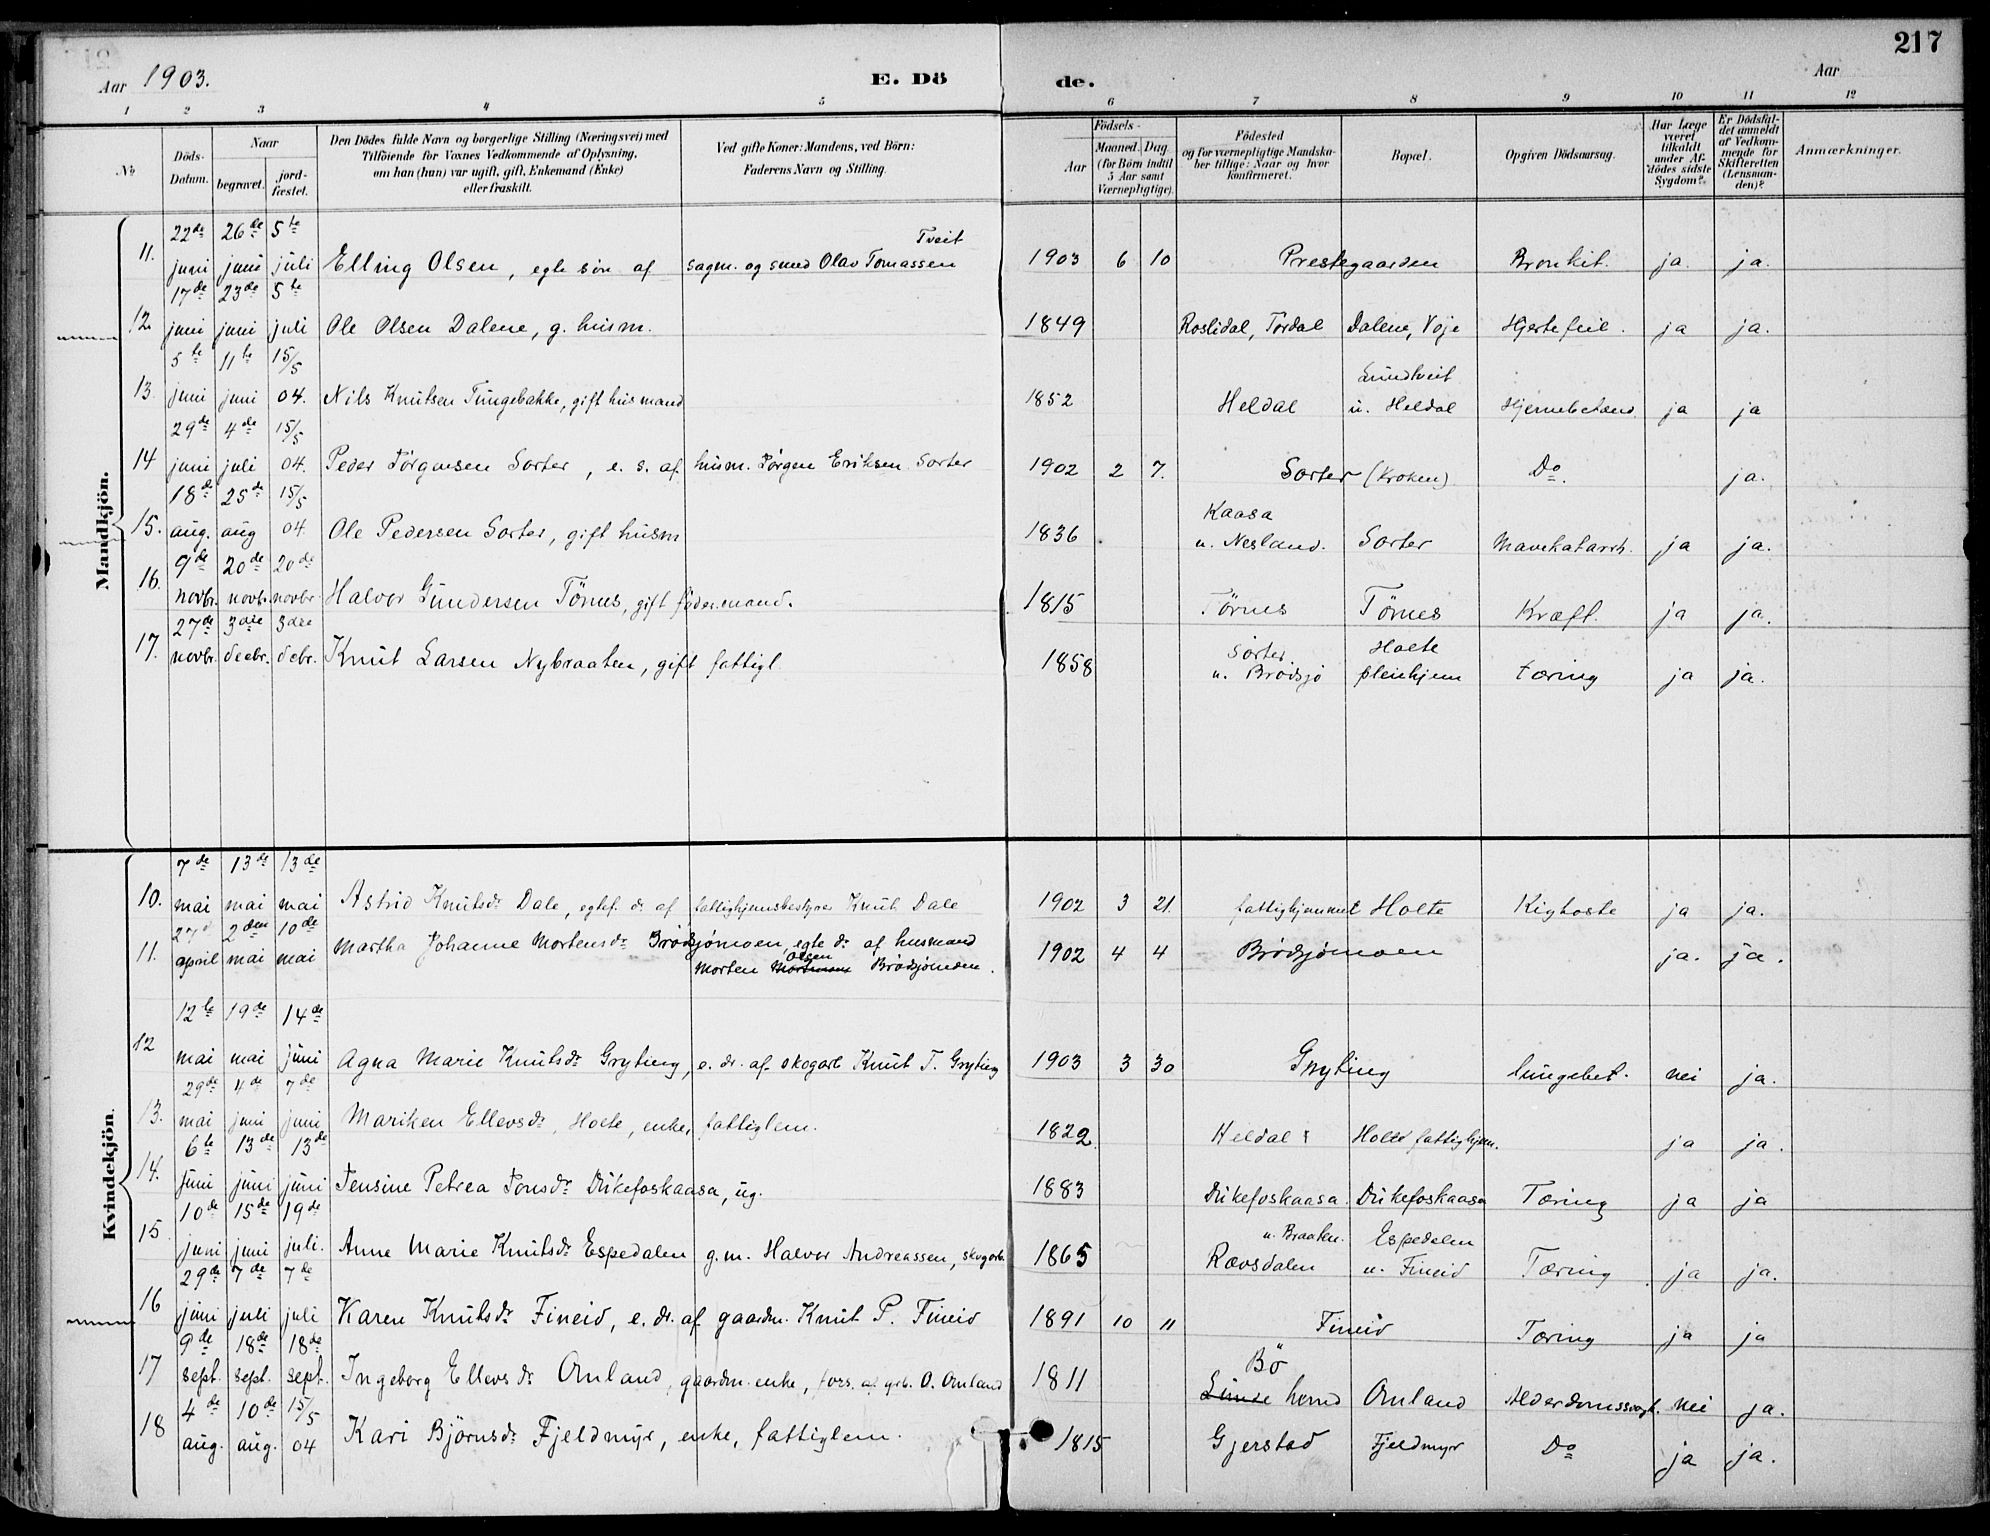 217
Aar 1903. E. Dö de. Aar
1 2 3 4 5 6 7 8 9 10 11 12
No Döds-Datum. Naar begravet. jordfæstet. Den Dödes fulde Navn og borgerlige Stilling (Næringsvei) med Tilföiende for Voxnes Vedkommende af Oplysning, om han (hun) var ugift, gift, Enkemand (Enke) eller fraskilt. Ved gifte Koner: Mandens, ved Börn: Faderens Navn og Stilling. Aar Födsels- Maaned. Dag. (for Börn indtil 5 Aar samt Værnepligtige). Födested og for værnepligtige Mandskaber tillige: Naar og hvor konfirmeret. Bopæl. Opgiven Dödsaarsag. Har Læge været tilkaldt under Afdödes sidste Sygdom? Er Dödsfaldet anmeldt af Vedkommende for Skifteretten (Lensmanden)? Anmærkninger.
Mandkjön.
11. 22de juni 26de juni 5te juli Elling Olsen, egte søn af sagm. og smed Olav Tomassen Tveit 1903 6 10 Prestegaarden Bronkit. ja. ja.
12. 17de juni 23de juni 5te juli Ole Olsen Dalene, g. husm. 1849 Roslidal, Tördal Dalene, Voje Hjertefeil. ja ja.
13. 5te juni 11te juni 15/5 04. Nils Knutsen Tungebakke, gift husmand 1852 Heldal Lundtveit u. Heldal Hjernebetænd. ja ja
14 29de juni 4de juli 15/5 04. Peder Jørgensen Sorter, e. s. af husm. Jørgen Eriksen Sorter 1902 2 7. Sorter (Kroken) Do. ja.
15. 18de aug. 25de aug 15/5 04. Ole Pedersen Sorter, gift husm 1836 Kaasa u. Nesland. Sorter Mavekatarrh. ja ja.
16. 9de novbr. 20de novbr. 20de novbr. Halvor Gundersen Törnes, gift föder.mand. 1815 Törnes Törnes Kræft. ja ja.
17. 27de novbr. 3die decbr. 3die debr. Knut Larsen Nybraaten, gift fattigl 1858 Sorter u. Brödsjö Holte pleiehjem tæring ja ja.
Kvindekjön.
10. 7de mai 13de mai 13de mai Astrid Knutsdr Dale, egtef. dr af fattighjemsbestyrer Knut Dale 1902 3 21. fattighjemmet Holte Kighoste ja ja.
11. 27d april 2den mai 10de mai Martha Johanne Mortensdr Brödsjömoen, egte dr af husmand Morten Olsen Brödsjömoen. 1902 4 4 Brödsjömoen ja. ja.
12 12te mai 19de mai 14de juni Agna Marie Knutsdr Gryting, e. dr. af skogarb Knut T. Gryting 1903 3 30 Gryting lungebet. nei ja.
13. 29de mai 4de juni 7de juni Mariken Ellevsdr, Holte, enke, fattiglem. 1822. Heldal Holte fattighjem. ja ja.
14. 6te juni 13de juni 13de juni Jensine Petrea Jonsdr Dukefoskaasa, ug. 1883 Dukefoskaasa. Dukefoskaasa Tæring ja ja
15 10de juni 15de juni 19de juli. Anne Marie Knutsdr Espedalen g. m. Halvor Andreassen, skogarb. 1865 u. Braaten. Rævsdalen Espedalen u. Fineid Tæring ja ja.
16 29de juni 7de juli 7de juli Karen Knutsdr Fineid, e. dr. af gaardm. Knut P. Fineid 1891 10 11 Fineid Tæring ja ja
17 9de sept. 18de sept. 18de sept. Ingeborg Ellevsdr Omland, gaardm. enke, fors. af grb. O. Omland 1811 Bö Lunde herred Omland Alderdomssvagh. nei ja.
18 4de aug. 10de aug. 15/5 04 Kari Björnsdr Fjeldmyr, enke, fattiglem. 1815 Gjerstad Fjeldmyr Do ja ja.